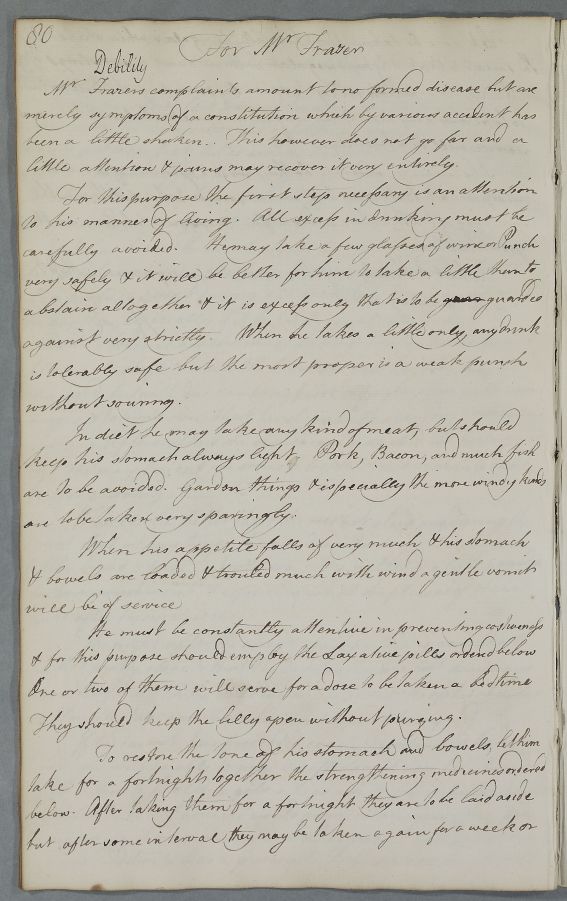 80
For Mr Frazer
Debility
Mr Frazers complaints amount to no formed disease but are
merely symptoms of a constitution which by various accident has
been a little shaken.. This however does not go far and a
little attention & pains may recover it very entirely.
For this purpose the first step necessary is an attention
to his manner of living. All excess in drinking must be
carefully avoided. He may take a few glasses of wine or Punch
very safely & it will be better for him to take a little then to
abstain altogether & it is excess only that is to be guarded
against very strictly. When he takes a little only, any drink
is tolerably safe but the most proper is a weak punch
without souring.
In diet he may take any kind of meat, but should
keep his stomach always light. Pork, Bacon, and much fish
are to be avoided. Garden things & especially the more windy kinds
are to be taken very sparingly.
When his appetite falls of very much & his stomach
& bowels are loaded & troubled much with wind a gentle vomit
will be of service
He must be constantly attentive in preventing costiveness
& for this purpose should employ the Laxative pills orderd below
One or two of them will serve for a dose to be taken a bedtime
They should keep the belly open without purging.
To restore the tone of his stomach and bowels, let him
take for a fortnight together the strengthening medicines ordered
below. After taking them for a fortnight they are to be laid aside
but after some interval they may be taken again for a week or